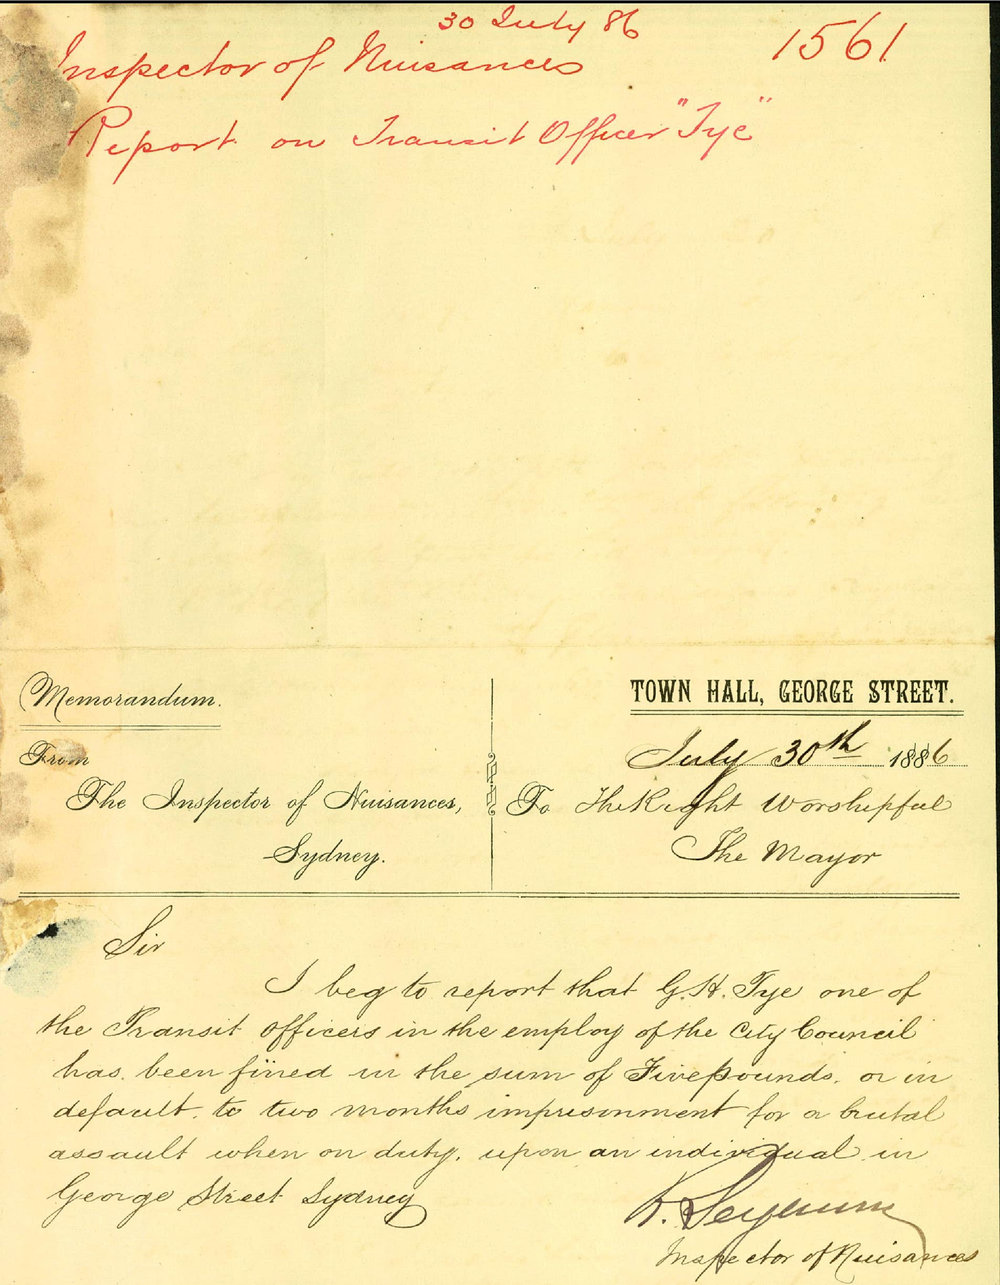 30 July 86
Inspector of Nuisances 1561
Report on Transit Officer "Tye"
Memorandum.
From
The Inspector of Nuisances,
Sydney.
TOWN HALL, GEORGE STREET.
July 30th 1886
To The Right Worshipful
The Mayor
Sir
I beg to report that G. H. Tye one of
the Transit Officers in the employ of the City Council
has been fined in the sum of Five pounds. or in
default. to two months imprisonment for a brutal
assault when on duty. upon an individual in
George Street Sydney
R. Seymour
Inspector of Nuisances